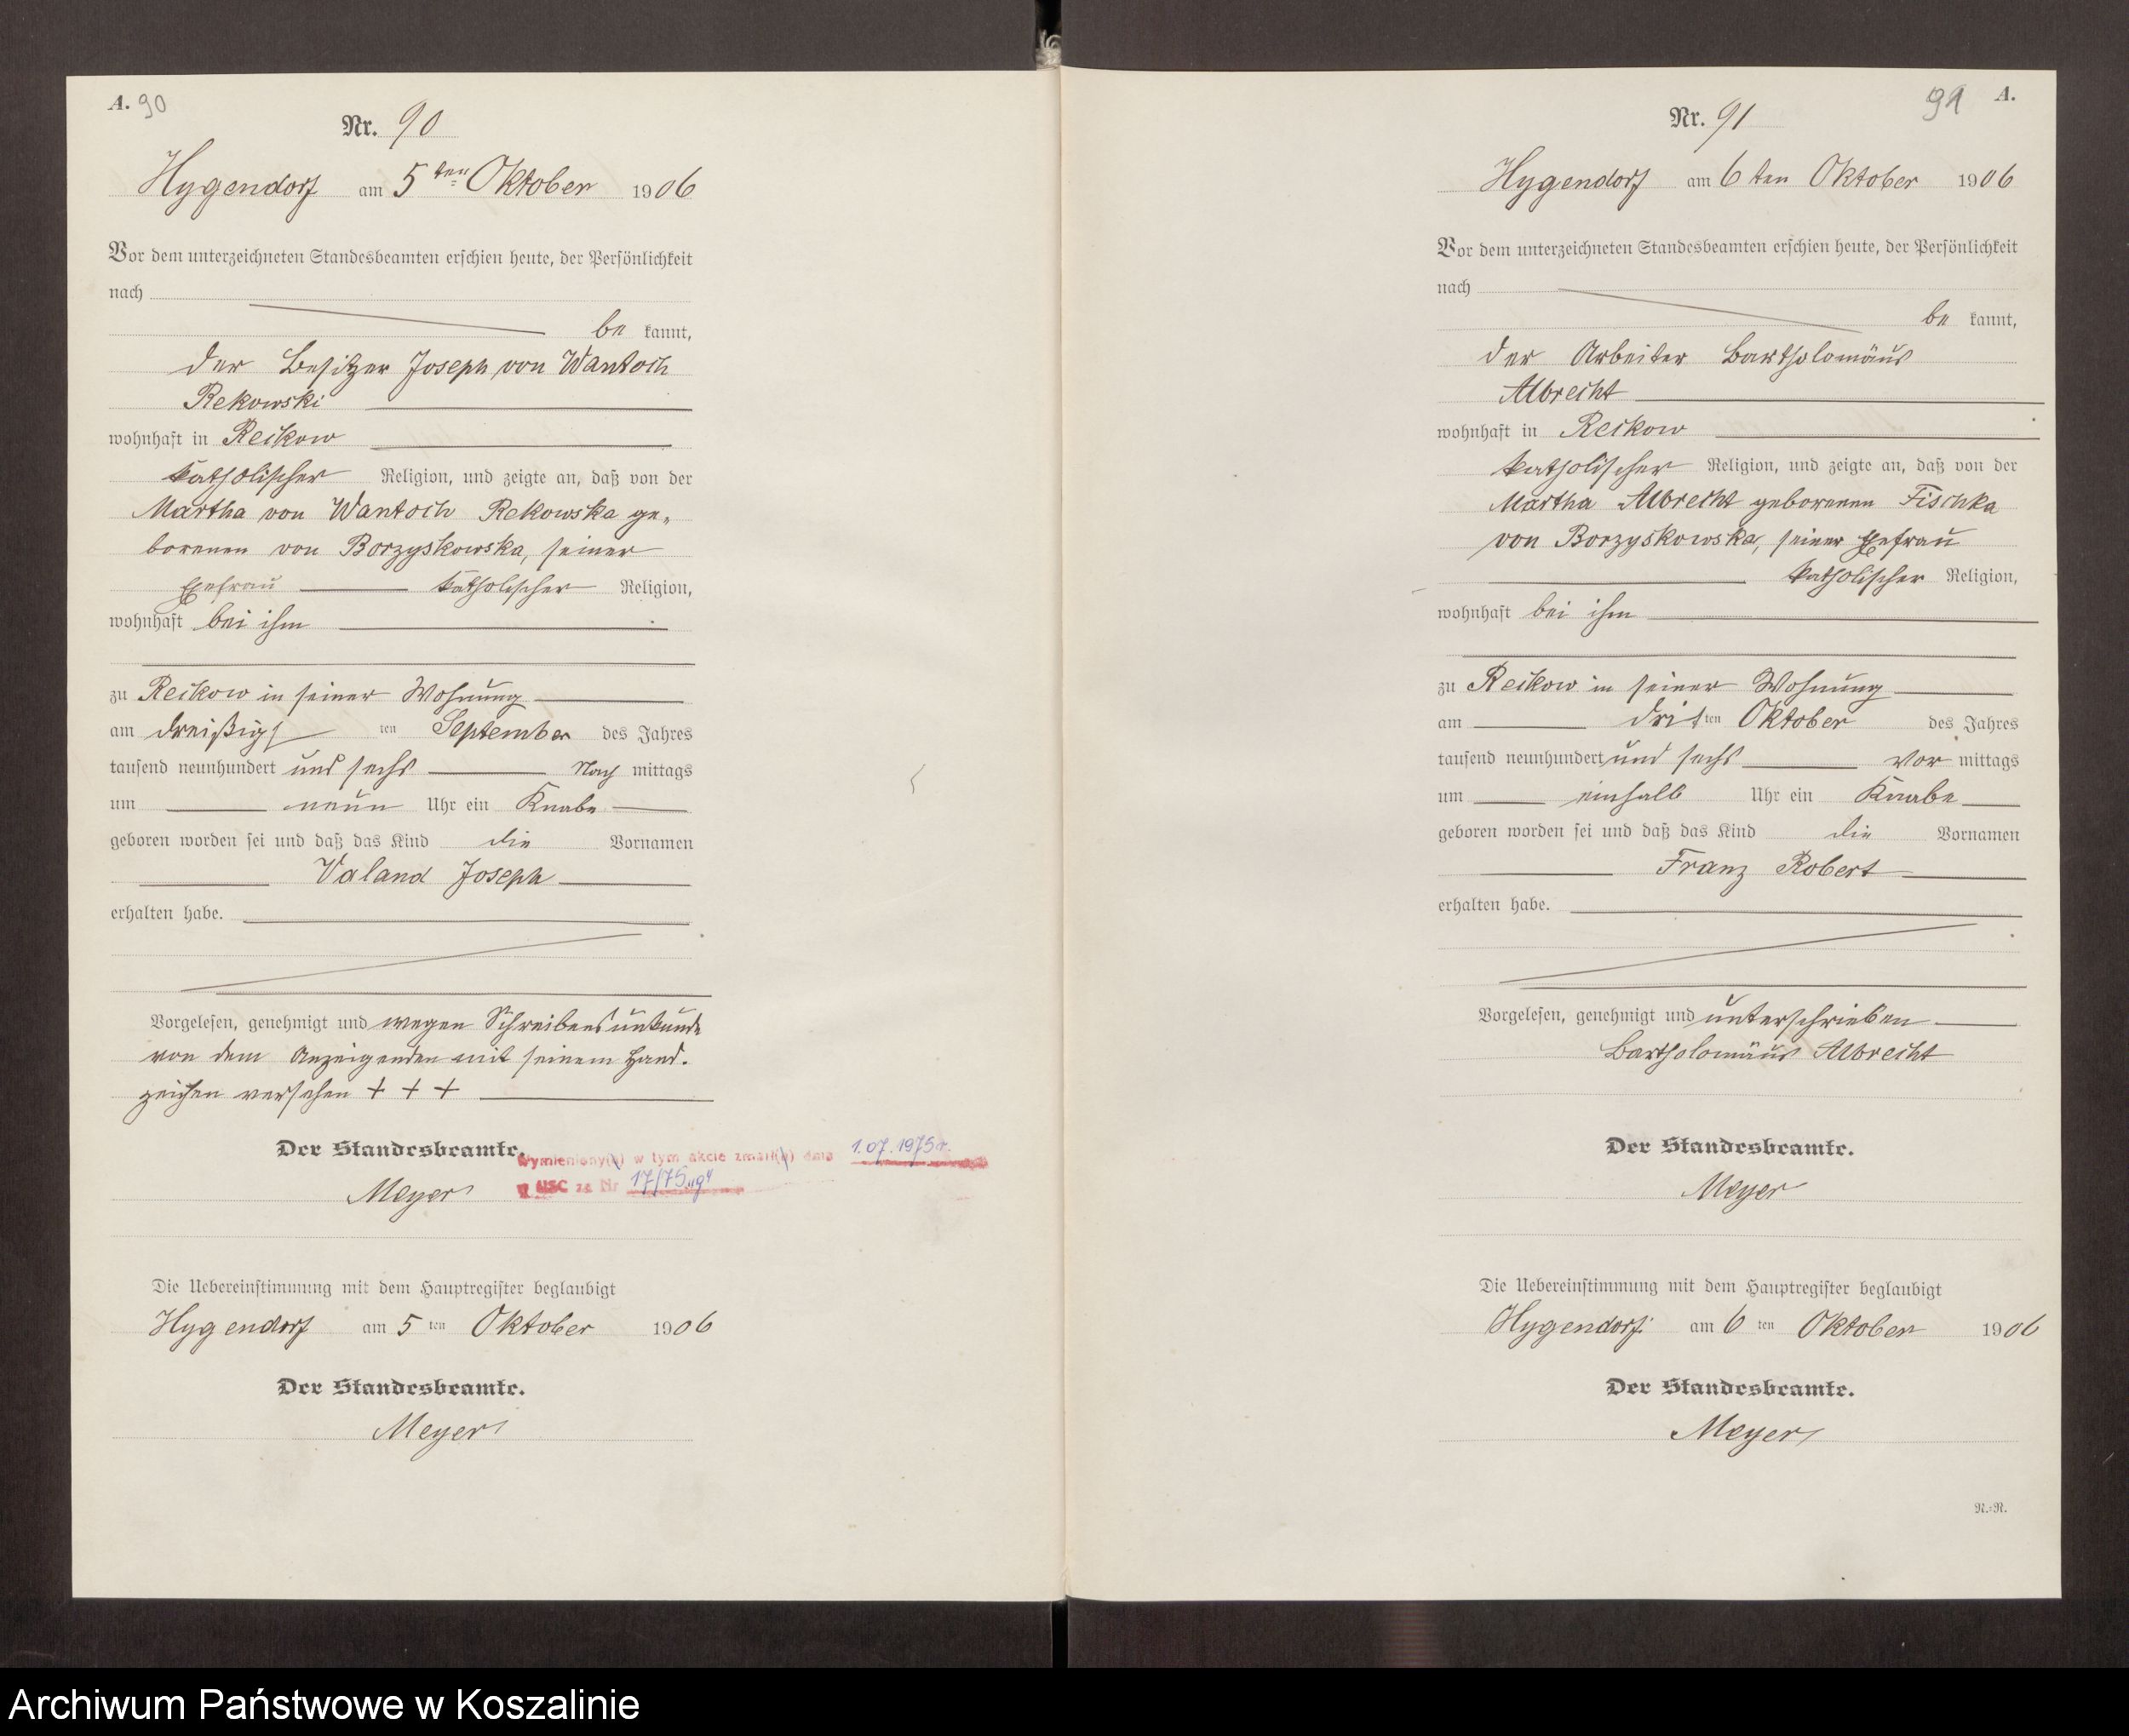 A. 90
Nr. 90
Hygendorf am 5ten Oktober 1906
Vor dem unterzeichneten Standesbeamten erschien heute, der Persönlichkeit
nach
be kannt,
der Besitzer Joseph von Wantoch
Rekowski
wohnhaft in Reckow
katholischer Religion, und zeigte an, daß von der
Martha von Wantoch Rekowska ge-
borenen von Borzyskowska, seiner
Ehefrau katholischer Religion,
wohnhaft bei ihm
zu Reckow in seiner Wohnung
am dreißigsten September des Jahres
tausend neunhundert und sechs Nach mittags
um neun Uhr ein Knabe
geboren worden sei und daß das Kind die Vornamen
Valand Joseph
erhalten habe.
Vorgelesen, genehmigt und wegen Schreibensunkunde
von dem Anzeigenden mit seinem Hand-
zeichen versehen + + +
Der Standesbeamte.
Wymieniony(a) w tym akcie zmarł(a) dnia 1.07.1975r.
w USC za Nr 17/75 „g"
Meyer
Die Uebereinstimmung mit dem Hauptregister beglaubigt
Hygendorf am 5ten Oktober 1906
Der Standesbeamte.
Meyer
91 A.
Nr. 91
Hygendorf am 6ten Oktober 1906
Vor dem unterzeichneten Standesbeamten erschien heute, der Persönlichkeit
nach
be kannt,
der Arbeiter Bartholomäus
Albrecht
wohnhaft in Reckow
katholischer Religion, und zeigte an, daß von der
Martha Albrecht geborenen Fischka
von Borzyskowska, seiner Ehefrau
katholischer Religion,
wohnhaft bei ihm
zu Reckow in seiner Wohnung
am dritten Oktober des Jahres
tausend neunhundert und sechs Vor mittags
um einhalb Uhr ein Knabe
geboren worden sei und daß das Kind die Vornamen
Franz Robert
erhalten habe.
Vorgelesen, genehmigt und unterschrieben
Bartholomäus Albrecht
Der Standesbeamte.
Meyer
Die Uebereinstimmung mit dem Hauptregister beglaubigt
Hygendorf am 6ten Oktober 1906
Der Standesbeamte.
Meyer
R.-R.
Archiwum Państwowe w Koszalinie